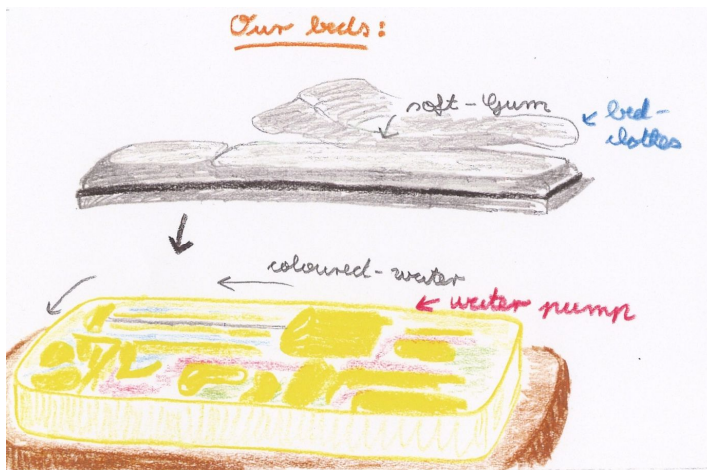 Our beds:
soft-Gum
bed-
clothes
coloured-water
water pump